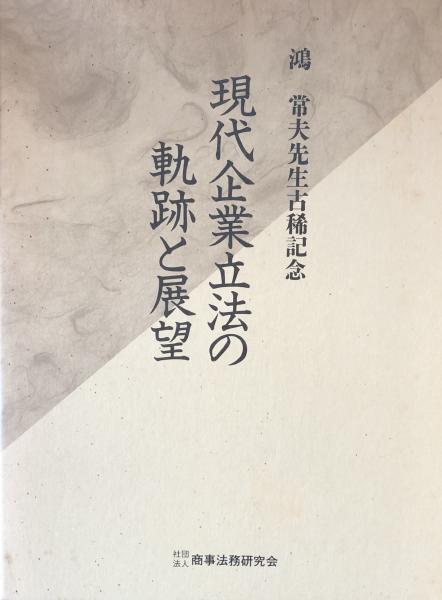 鴻 常夫先生古稀記念
現代企業立法の
軌跡と展望
社団法人 商事法務研究会